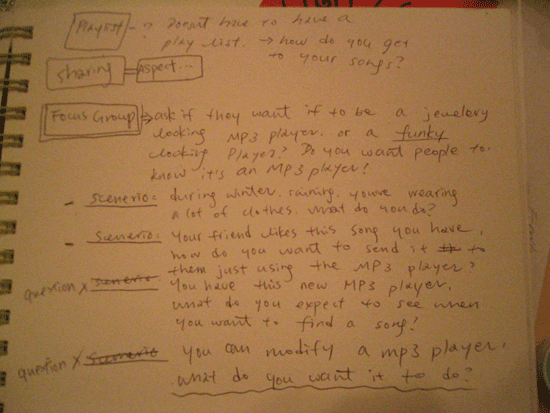 Playlist - ? Doesn't have to have a
play list. → how do you get
to your songs?
Sharing = Aspect...
Focus Group → ask if they want it to be a jewelery
looking MP3 player. or a funky
looking Player? Do you want people to
know it's an MP3 player!
- scenerio: during winter, raining, you're wearing
a lot of clothes. what do you do?
- scenerio: Your friend likes this song you have,
how do you want to send it to
them just using the MP3 player?
question x scenerio You have this new MP3 player,
what do you expect to see when
you want to find a song?
question x scenerio You can modify a mp3 player,
what do you want it to do?